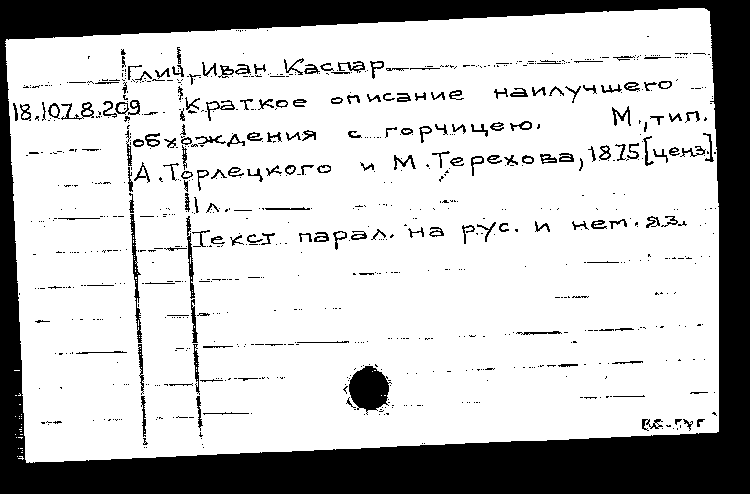 Глич, Иван Каспар
18.107.8.209 Краткое описание наилучшего
обхождения с горчицею. М., тип.
А. Торлецкого и М. Терехова, 1875 [ценз.].
1 л.
Текст парал. на рус. и нем. яз.